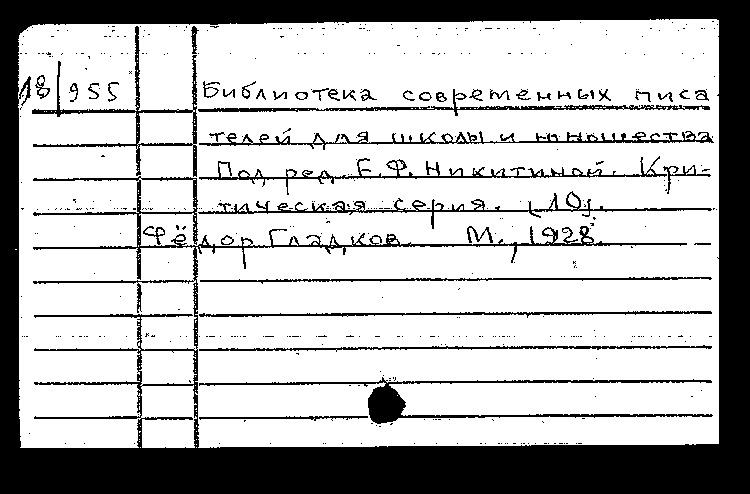 18/955 Библиотека современных писа
телей для школы и юношества
Под ред. Е.Ф. Никитиной. Кри-
тическая серия. [10].
Фёдор Гладков. М., 1928.